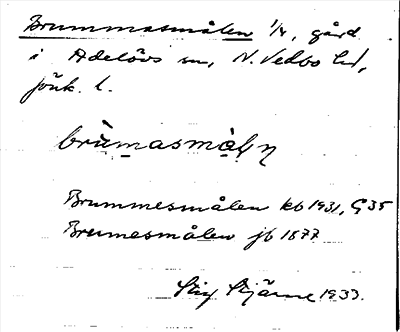 Brummasmålen 1/4, gård
i Adelövs sn, N. Vedbo hd,
jönk. l.
brùmasmàḷn
Brummesmålen kb 1931, G 35
Brumesmålen jb 1877
Stig Stjärne 1933.